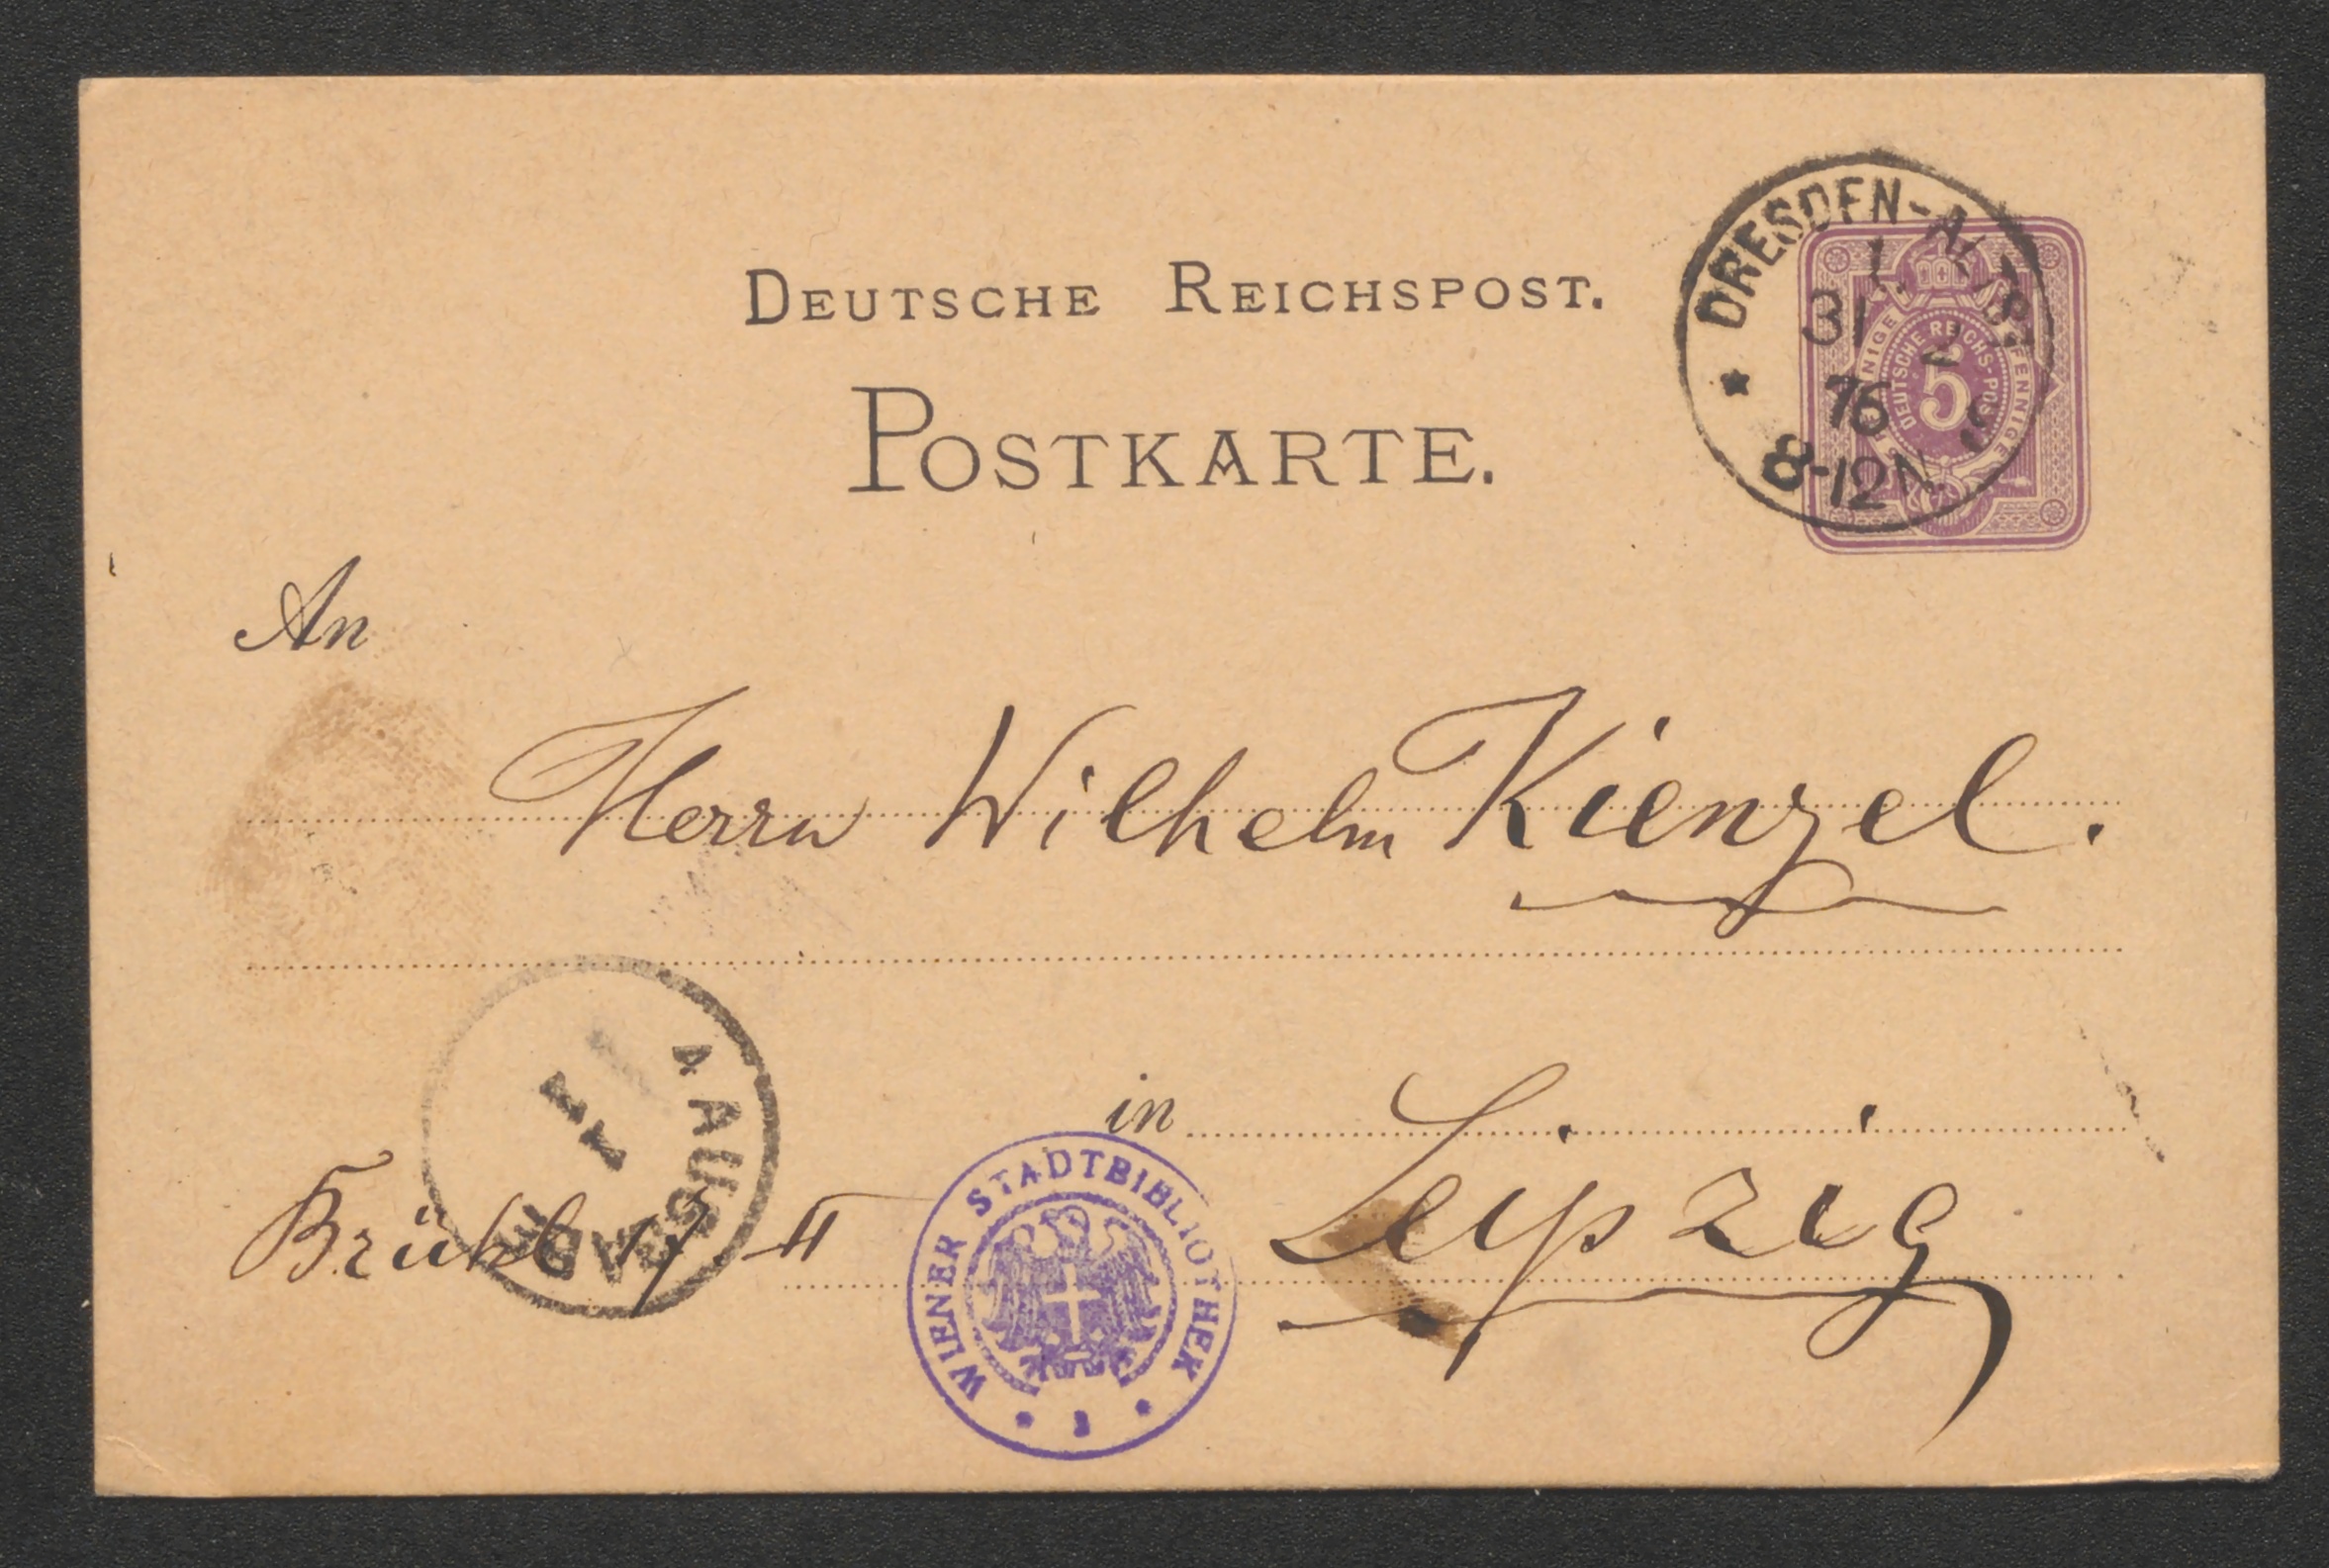 DEUTSCHE REICHSPOST.
POSTKARTE.
DRESDEN-ALTST.
31
76
8-12N.
DEUTSCHE REICHS-POST
5
An
Herrn Wilhelm Kienzel.
in Leipzig
Brühl 17 II
WIENER STADTBIBLIOTHEK